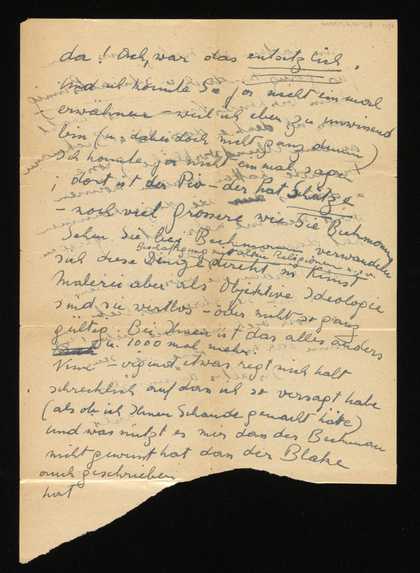 da! Ach, war das entsetzlich.
Und ich konnte Sie ja nicht einmal
erwähnen – weil ich eben zu unwissend
bin (u. dabei doch nicht ganz dumm)
Ich konnte ja nicht einmal sagen
; dort ist der Pio – der hat Schätze
– noch viel grössere wie Sie Bechmann
Sehn Sie lieber Bechmann verwandeln
Beschäftigung mit alten Religionen u.s.w.
sich diese Dinge direkt in Kunst
Materie aber als Objektive Ideologie
sind sie wertlos – oder nicht so ganz
gültig. Bei Ihnen ist das alles anders
u. 1000 mal mehr.
– irgend etwas regt mich halt
schrecklich auf dan ich so versagt habe
(als ob ich Ihnen Schande gemacht hätte)
und was nützt es mir dan der Bechmann
nicht gewusst hat dan der Blake
auch geschrieben
hat